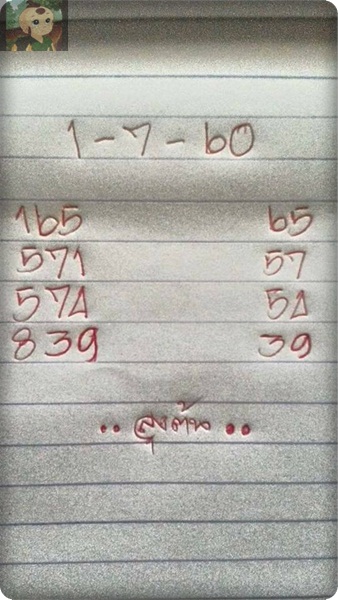 1-7-60
165 65
571 57
574 54
839 39
.. ลุงต้น ..